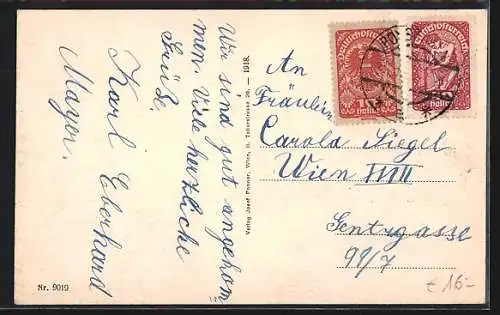 Wir sind gut angekom
men. Viele herzliche
Grüße.
Karl Eberhard
Mayer.
Verlag Josef Popper, Wien, II. Taborstrasse 26. — 1918.
Deutschösterreich
10
Heller
Deutschösterreich
Heller
An
Fräulein
Carola Siegel
Wien
Gentzgasse
99/7
Nr. 9019
€ 16.-